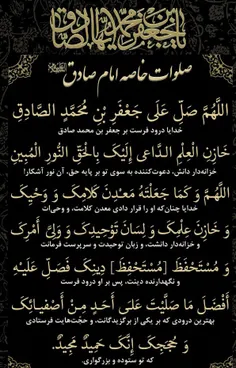 یا جعفر بن محمد ایها الصادق
صلوات خاصه امام صادق
اللَّهُمَّ صَلِّ عَلَى جَعْفَرِ بْنِ مُحَمَّدٍ الصَّادِقِ
خدایا درود فرست بر جعفر بن محمد صادق
خَازِنِ الْعِلْمِ الدَّاعِي إِلَيْكَ بِالْحَقِّ النُّورِ الْمُبِينِ
خزانه‌دار دانش، دعوت‌کننده به سوی تو بر پایه حق، آن نور آشکار!
اللَّهُمَّ وَ كَمَا جَعَلْتَهُ مَعْدِنَ كَلَامِكَ وَ وَحْيِكَ
خدایا چنان‌که او را قرار دادی معدن کلامت، و وحی‌ات
وَ خَازِنَ عِلْمِكَ وَ لِسَانَ تَوْحِيدِكَ وَ وَلِيَّ أَمْرِكَ
و خزانه‌دار دانشت، و زبان توحیدت و سرپرست فرمانت
وَ مُسْتَحْفَظَ [مُسْتَحْفِظَ] دِينِكَ فَصَلِّ عَلَيْهِ
و نگهدارنده دینت، پس بر او درود فرست
أَفْضَلَ مَا صَلَّيْتَ عَلَى أَحَدٍ مِنْ أَصْفِيَائِكَ
بهترین درودی که بر یکی از برگزیدگانت، و حجّت‌هایت فرستادی
وَ حُجَجِكَ إِنَّكَ حَمِيدٌ مَجِيدٌ.
که تو ستوده و بزرگواری.